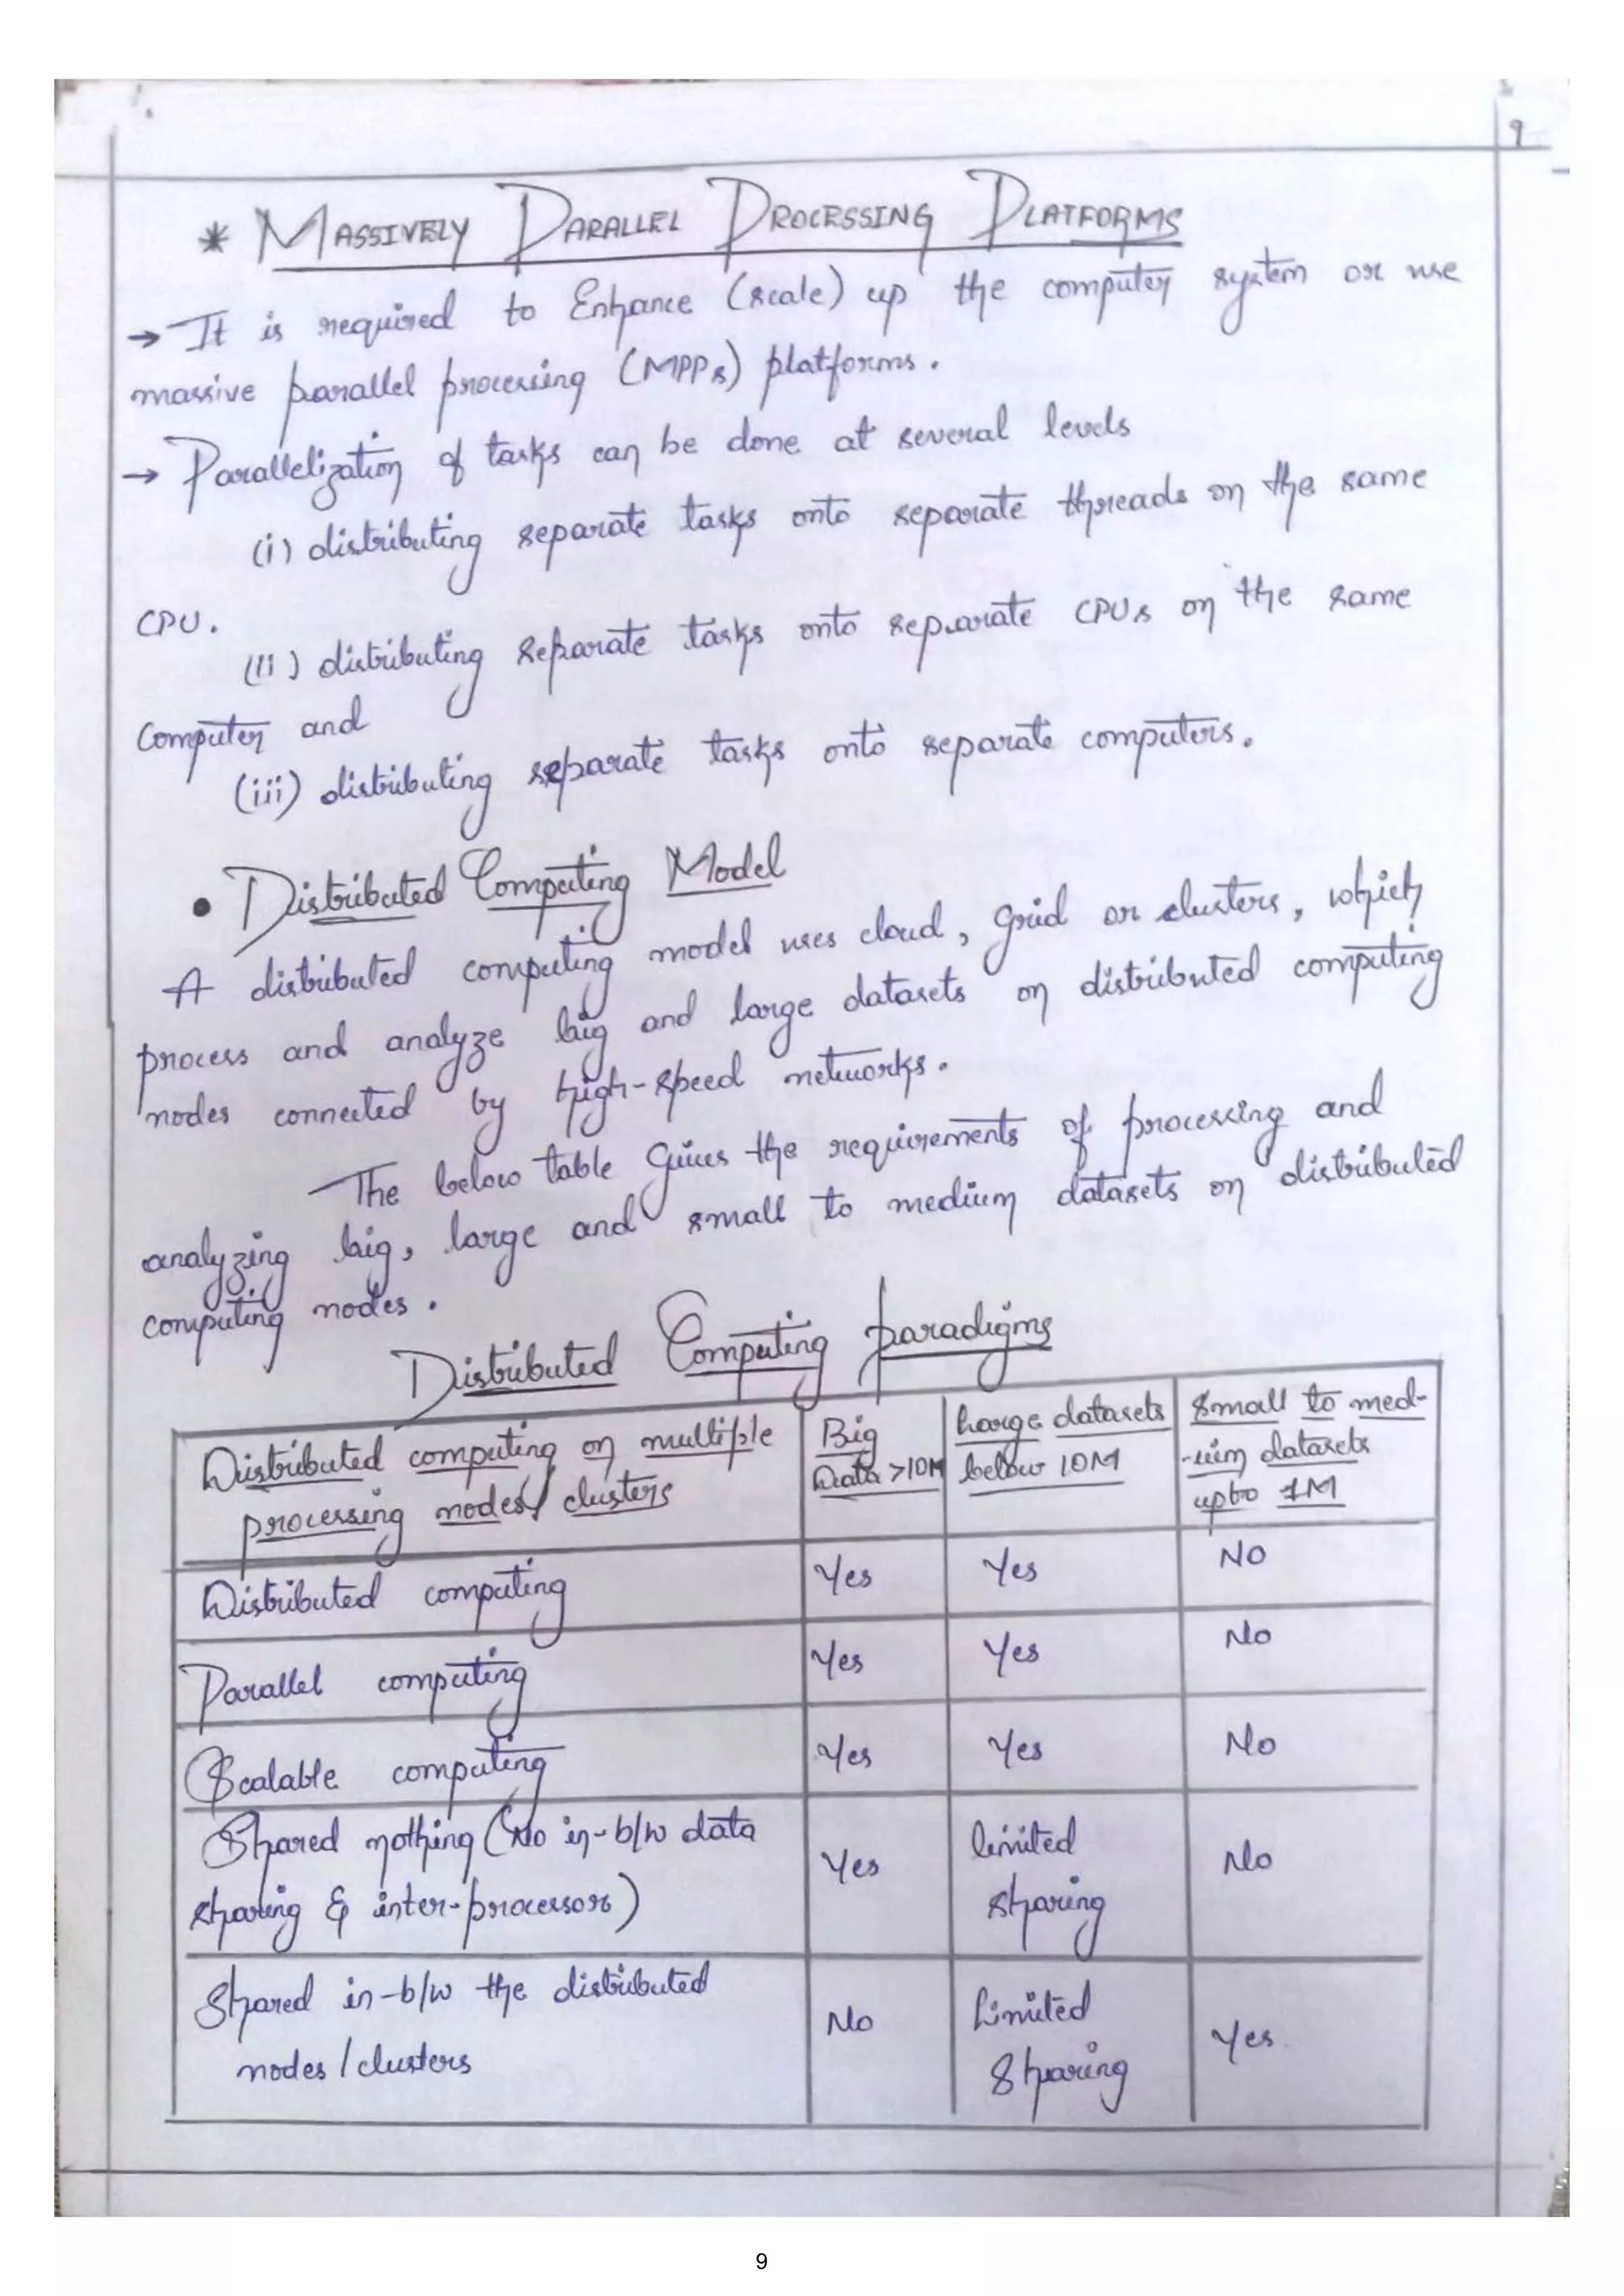 9
* MASSIVELY PARALLEL PROCESSING PLATFORMS
→ It is required to Enhance (scale) up the computer system or use
massive parallel processing (MPPs) platforms.
→ Parallelization of tasks can be done at several levels
(i) distributing separate tasks onto separate threads on the same
CPU.
(ii) distributing separate tasks onto separate CPUs on the same
Computer and
(iii) distributing separate tasks onto separate computers.
• Distributed Computing Model
A distributed computing model uses cloud, grid or clusters, which
process and analyze big and large datasets on distributed computing
nodes connected by high-speed networks.
The below table gives the requirements of processing and
analyzing big, large and small to medium datasets on distributed
computing nodes.
Distributed Computing paradigms
Distributed computing on multiple processing nodes/clusters | Big Data >10M | Large datasets below 10M | Small to med-ium datasets upto 1M
Distributed computing | Yes | Yes | No
Parallel computing | Yes | Yes | No
Scalable computing | Yes | Yes | No
Shared nothing (No in-b/w data sharing & inter-processors) | Yes | limited sharing | No
Shared in-b/w the distributed nodes/clusters | No | Limited Sharing | Yes
9